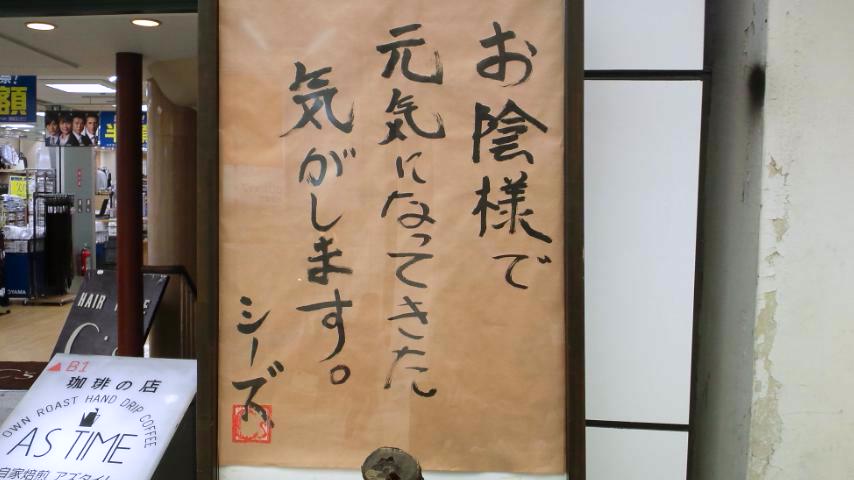 お陰様で
元気になってきた
気がします。
シーズ
額
半
HAIR
B1
珈琲の店
OWN ROAST HAND DRIP COFFEE
AS TIME
自家焙煎 アズタイム